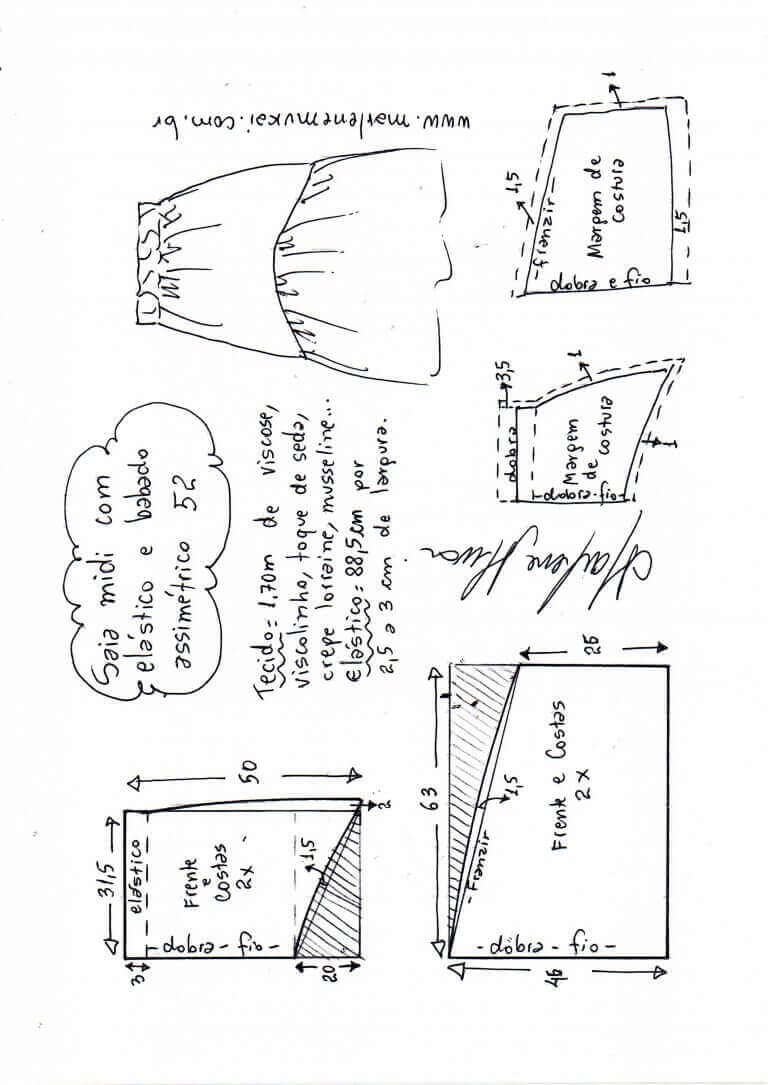 Saia midi com
elástico e babado
assimétrico 52
www.marlenemukai.com.br
Tecido = 1.70m de viscose,
viscolinho, toque de seda,
crepe lorraine, musseline...
elástico = 88,5cm por
2,5 a 3 cm de largura.
31,5
3
elástico
50
Frente
e
Costas
2x
- dobra - fio -
1,5
20
2
Marlene Mukai
3,5
dobra
1
Margem
de costura
- dobra - fio -
1
1
1,5
- franzir -
Margem de
costura
dobra e fio
1,5
63
- Franzir -
1,5
Frente e Costas
2x
- dobra - fio -
46
26